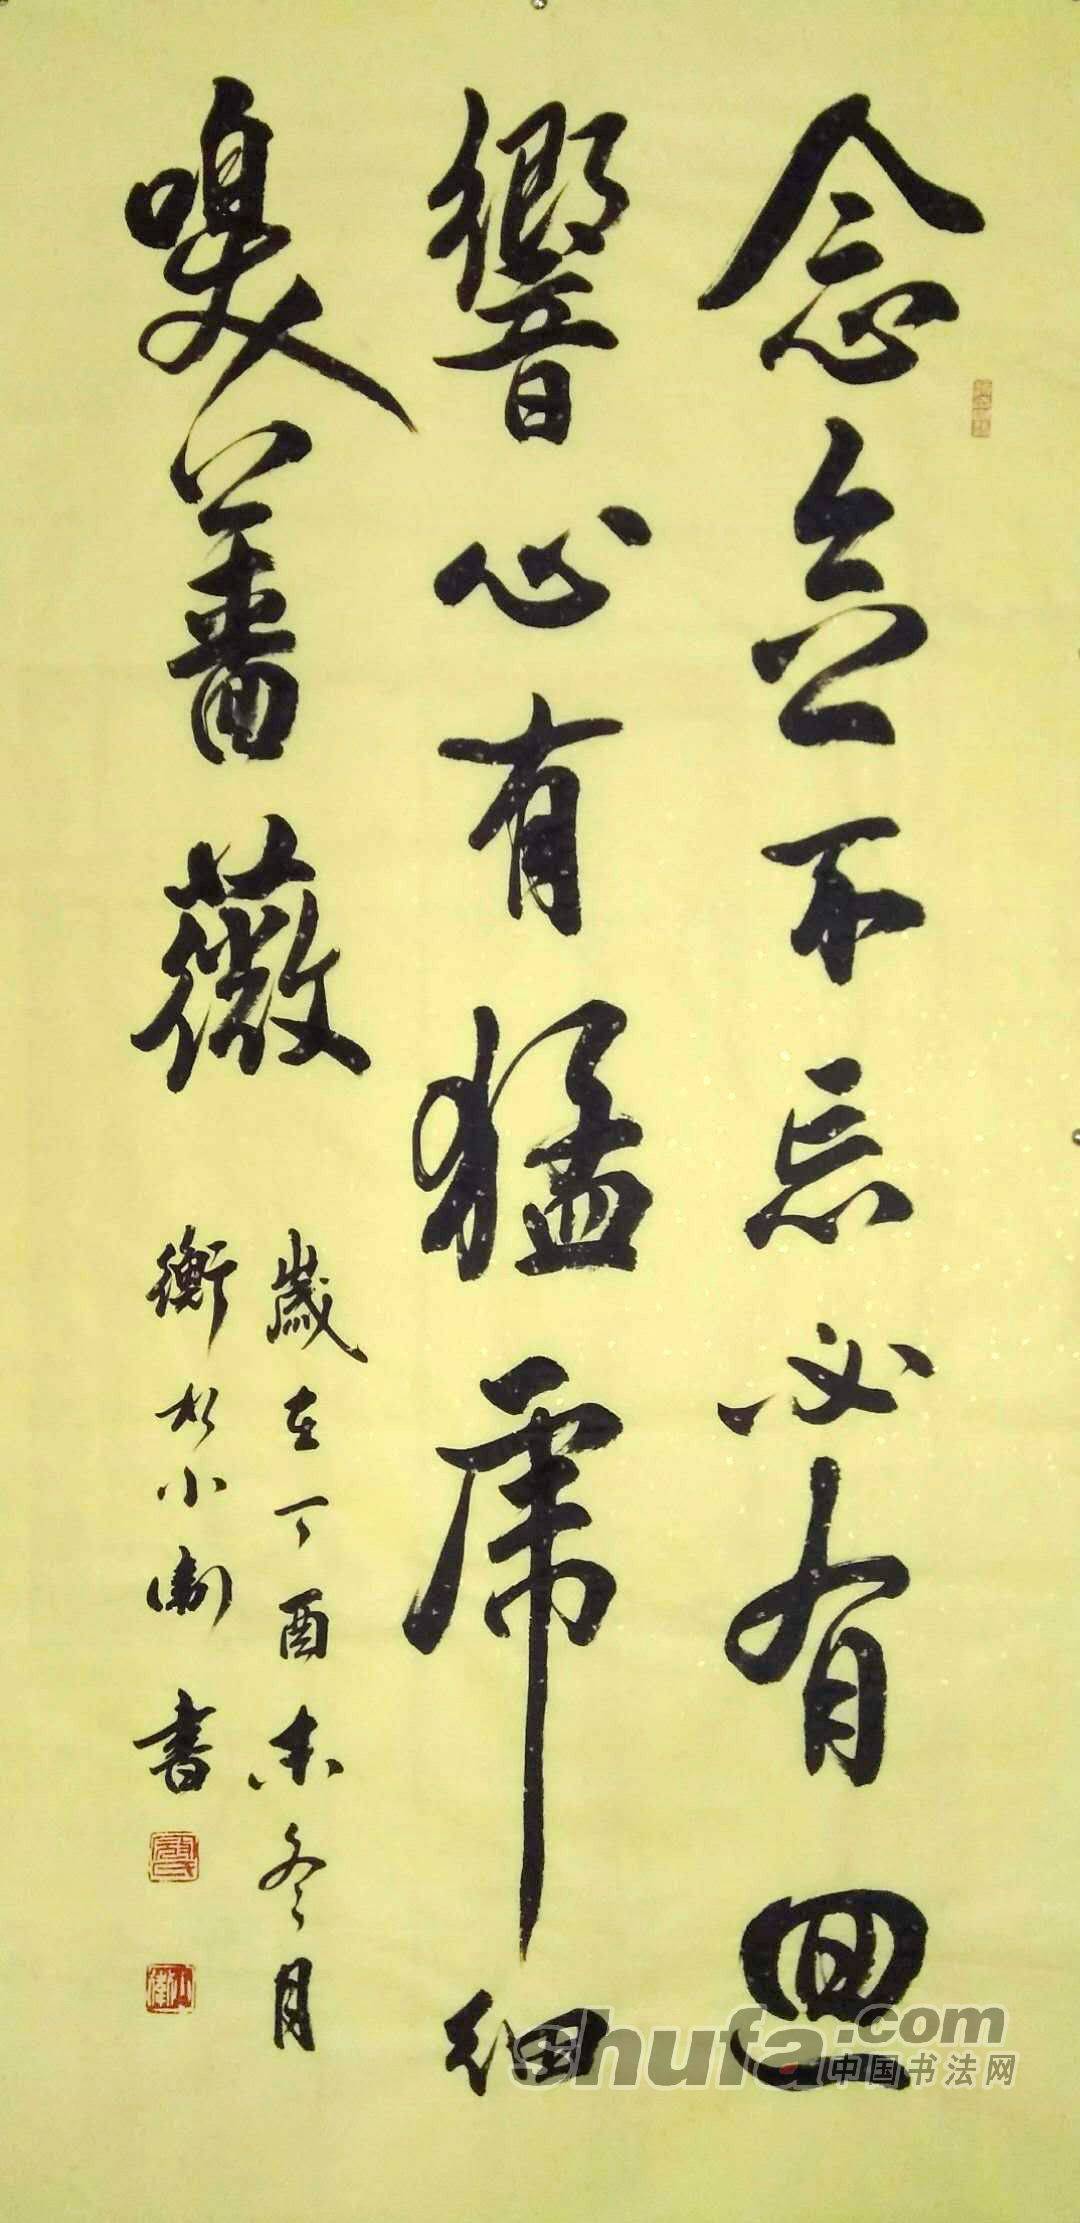 念念不忘必有迴
響心有猛虎細
嗅薔薇
歲在丁酉末冬月
衡山小衛書
shufa.com
中国书法网